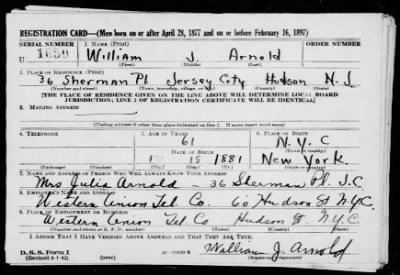 REGISTRATION CARD—(Men born on or after April 28, 1877 and on or before February 16, 1897)
SERIAL NUMBER 1. NAME (Print) ORDER NUMBER
U William J. Arnold
2. PLACE OF RESIDENCE (Print)
36 Sherman Pl. Jersey City Hudson N.J.
[THE PLACE OF RESIDENCE GIVEN ON THE LINE ABOVE WILL DETERMINE LOCAL BOARD
JURISDICTION; LINE 2 OF REGISTRATION CERTIFICATE WILL BE IDENTICAL]
3. MAILING ADDRESS
[Mailing address if other than place indicated on line 2. If same insert word same]
4. TELEPHONE 5. AGE IN YEARS 6. PLACE OF BIRTH
61 N.Y.C
DATE OF BIRTH
1881 New York.
7. NAME AND ADDRESS OF PERSON WHO WILL ALWAYS KNOW YOUR ADDRESS
Mrs Julia Arnold - 36 Sherman Pl. J.C.
8. EMPLOYER'S NAME AND ADDRESS
Western Union Tel. Co. 60 Hudson St N.Y.C.
9. PLACE OF EMPLOYMENT OR BUSINESS
Western Union Tel. Co Hudson St. N.Y.C.
I AFFIRM THAT I HAVE VERIFIED ABOVE ANSWERS AND THAT THEY ARE TRUE.
D. S. S. Form 1
(Revised 4-1-42) William J. Arnold